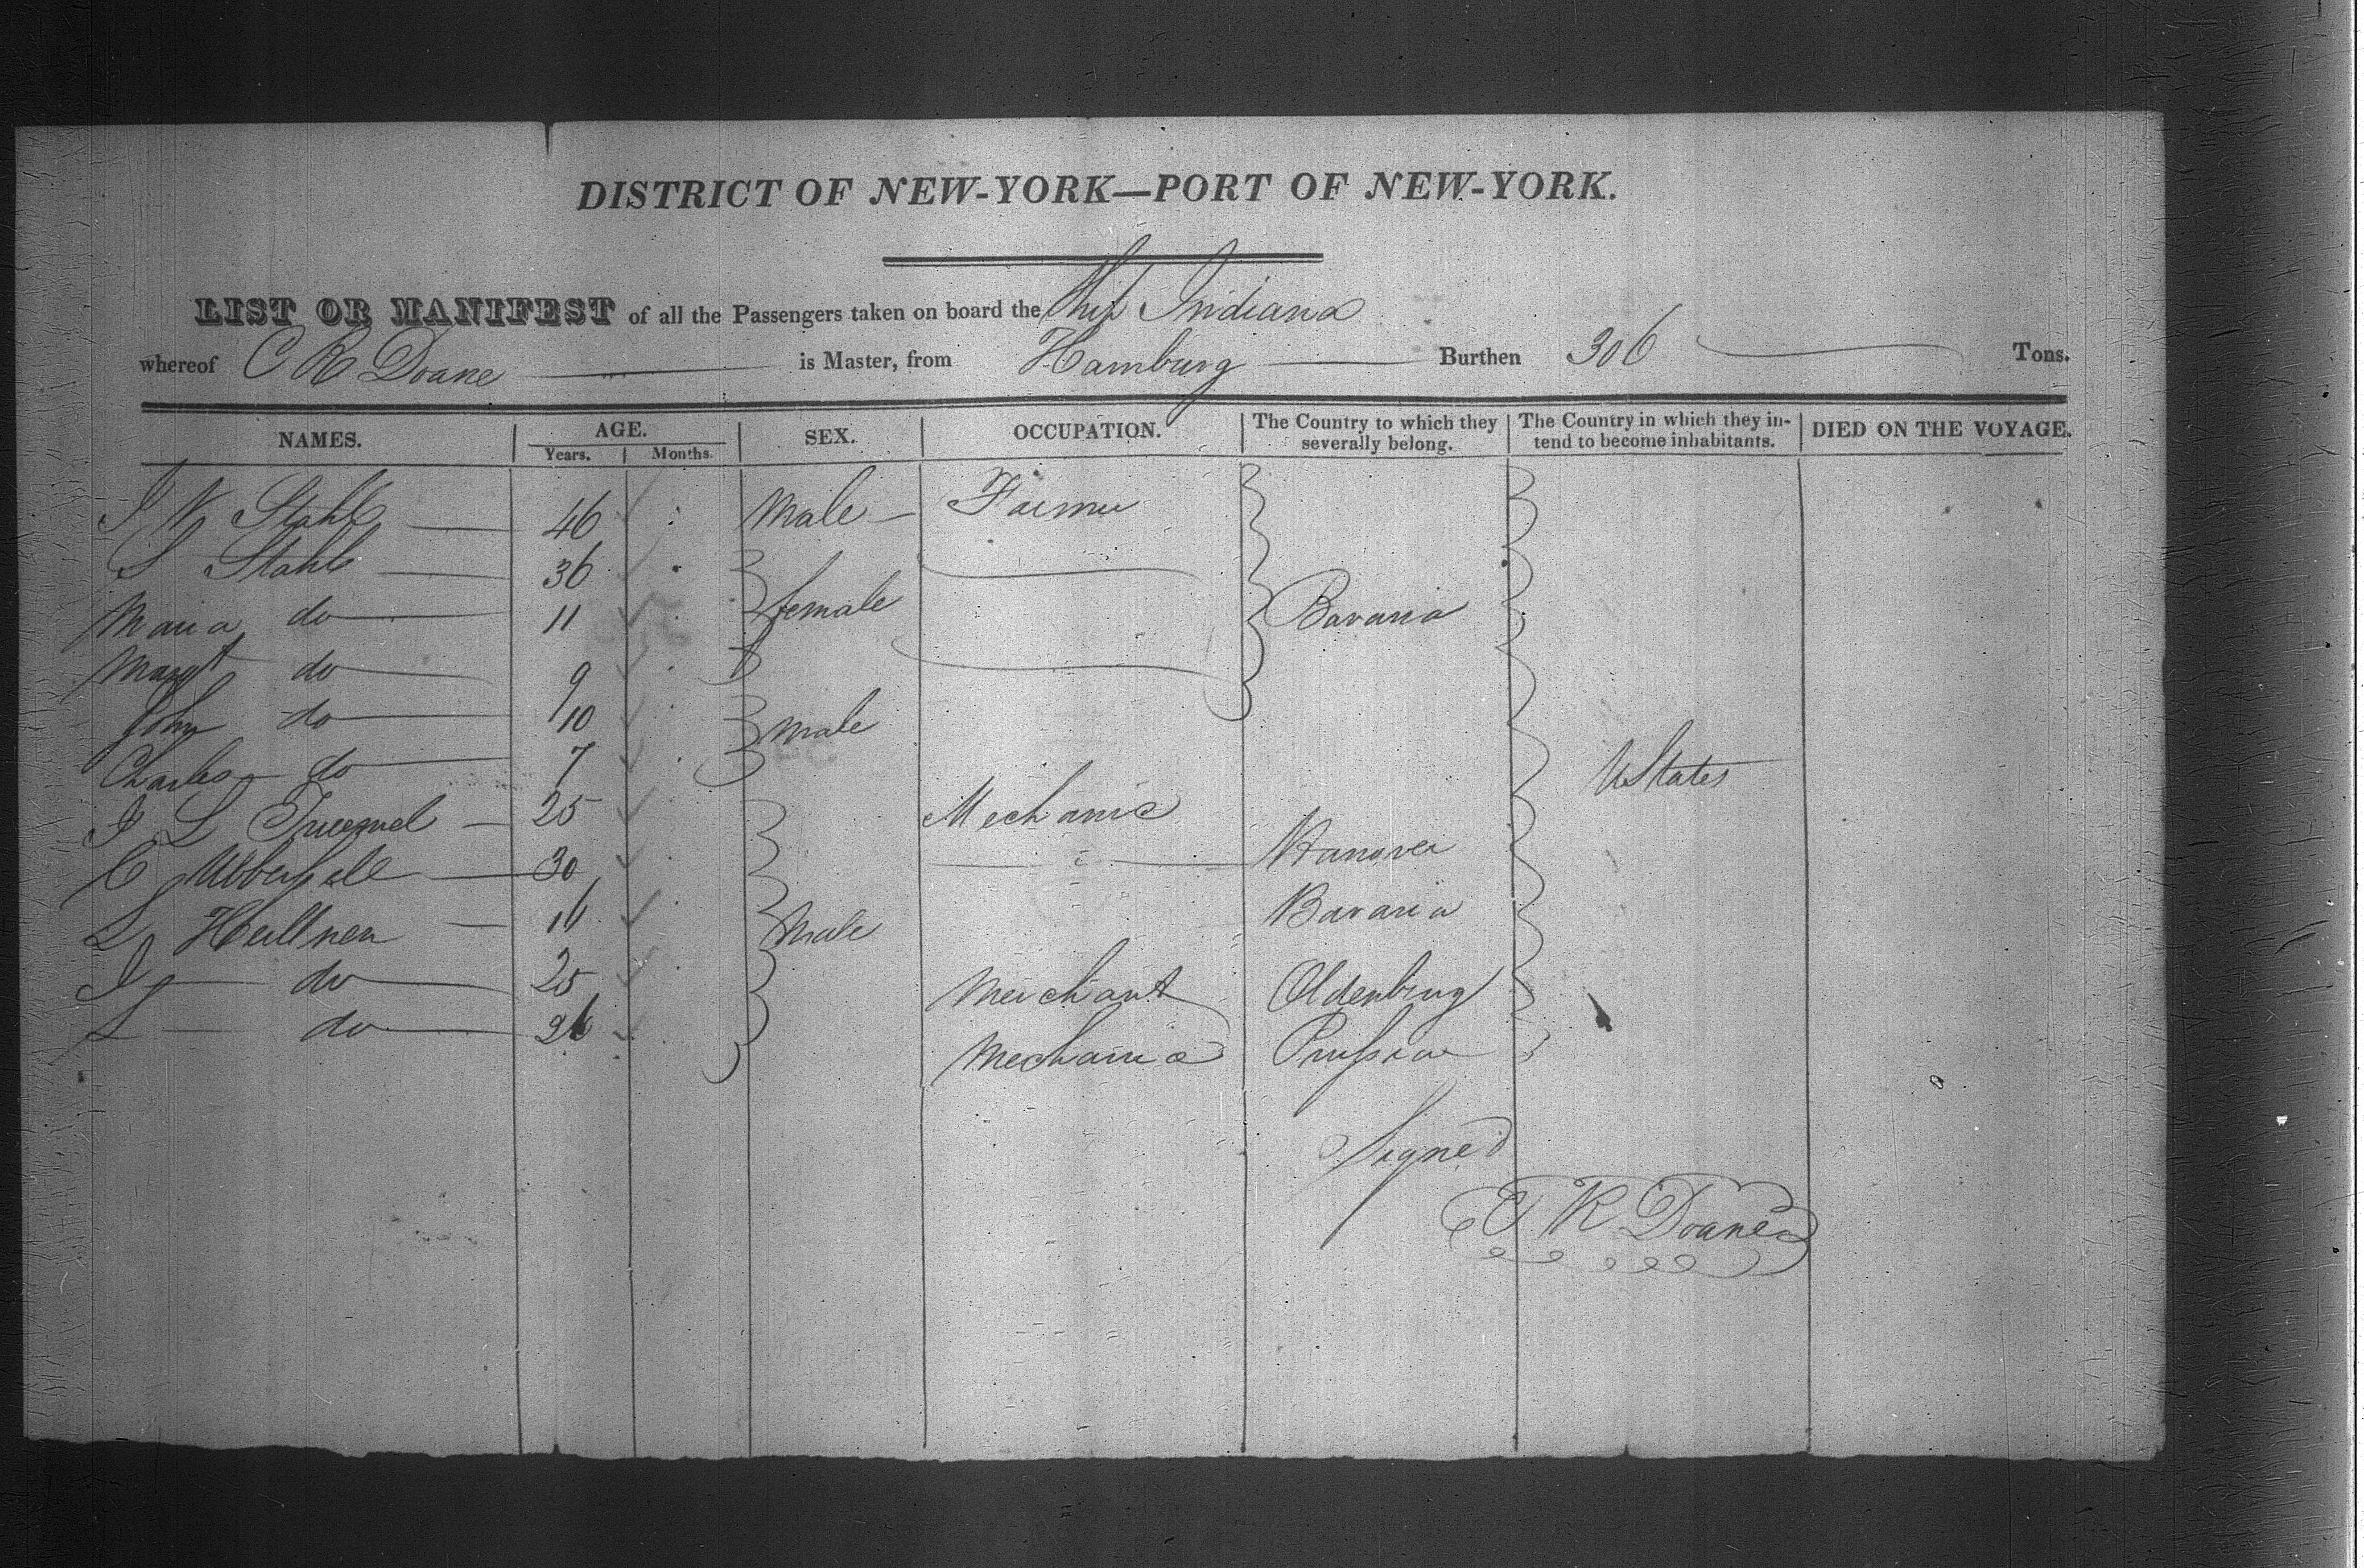 DISTRICT OF NEW-YORK—PORT OF NEW-YORK.
LIST OR MANIFEST of all the Passengers taken on board the Ship Indiana
whereof C R Doane is Master, from Hamburg Burthen 306 Tons.
NAMES. AGE. Years. Months. SEX. OCCUPATION. The Country to which they severally belong. The Country in which they intend to become inhabitants. DIED ON THE VOYAGE.
J N Stahl 46 Male Farmer
S Stahl 36
Maria do 11 female Bavaria
Margt do 9
John do 9/10 male
Charles do 7 UStates
J L 25 Mechanic
C 30 Hanover
L Heillner 16 Male Bavaria
J do 25 Merchant Oldenburg
L do 26 Mechanic Prussia
Signed
C R Doane